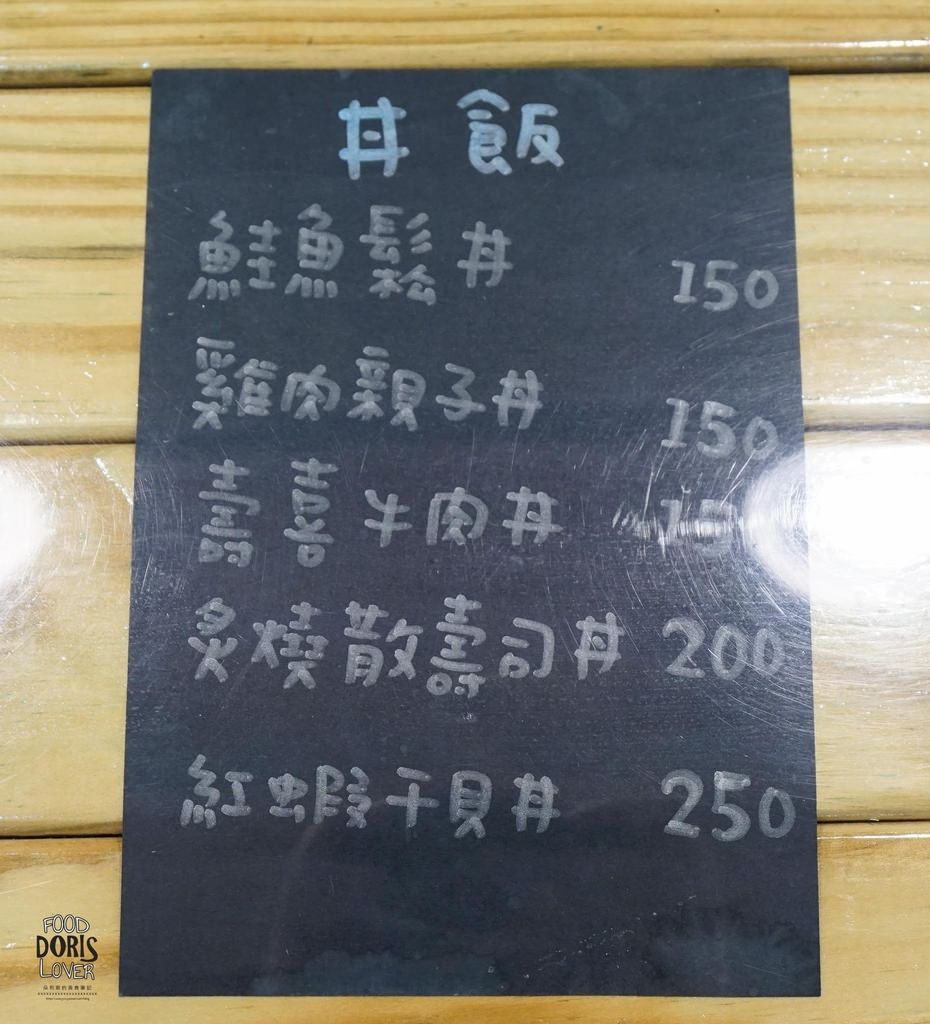 丼飯
鮭魚鬆丼 150
雞肉親子丼 150
壽喜牛肉丼 15
炙燒散壽司丼 200
紅蝦干貝丼 250
FOOD
DORIS
LOVER